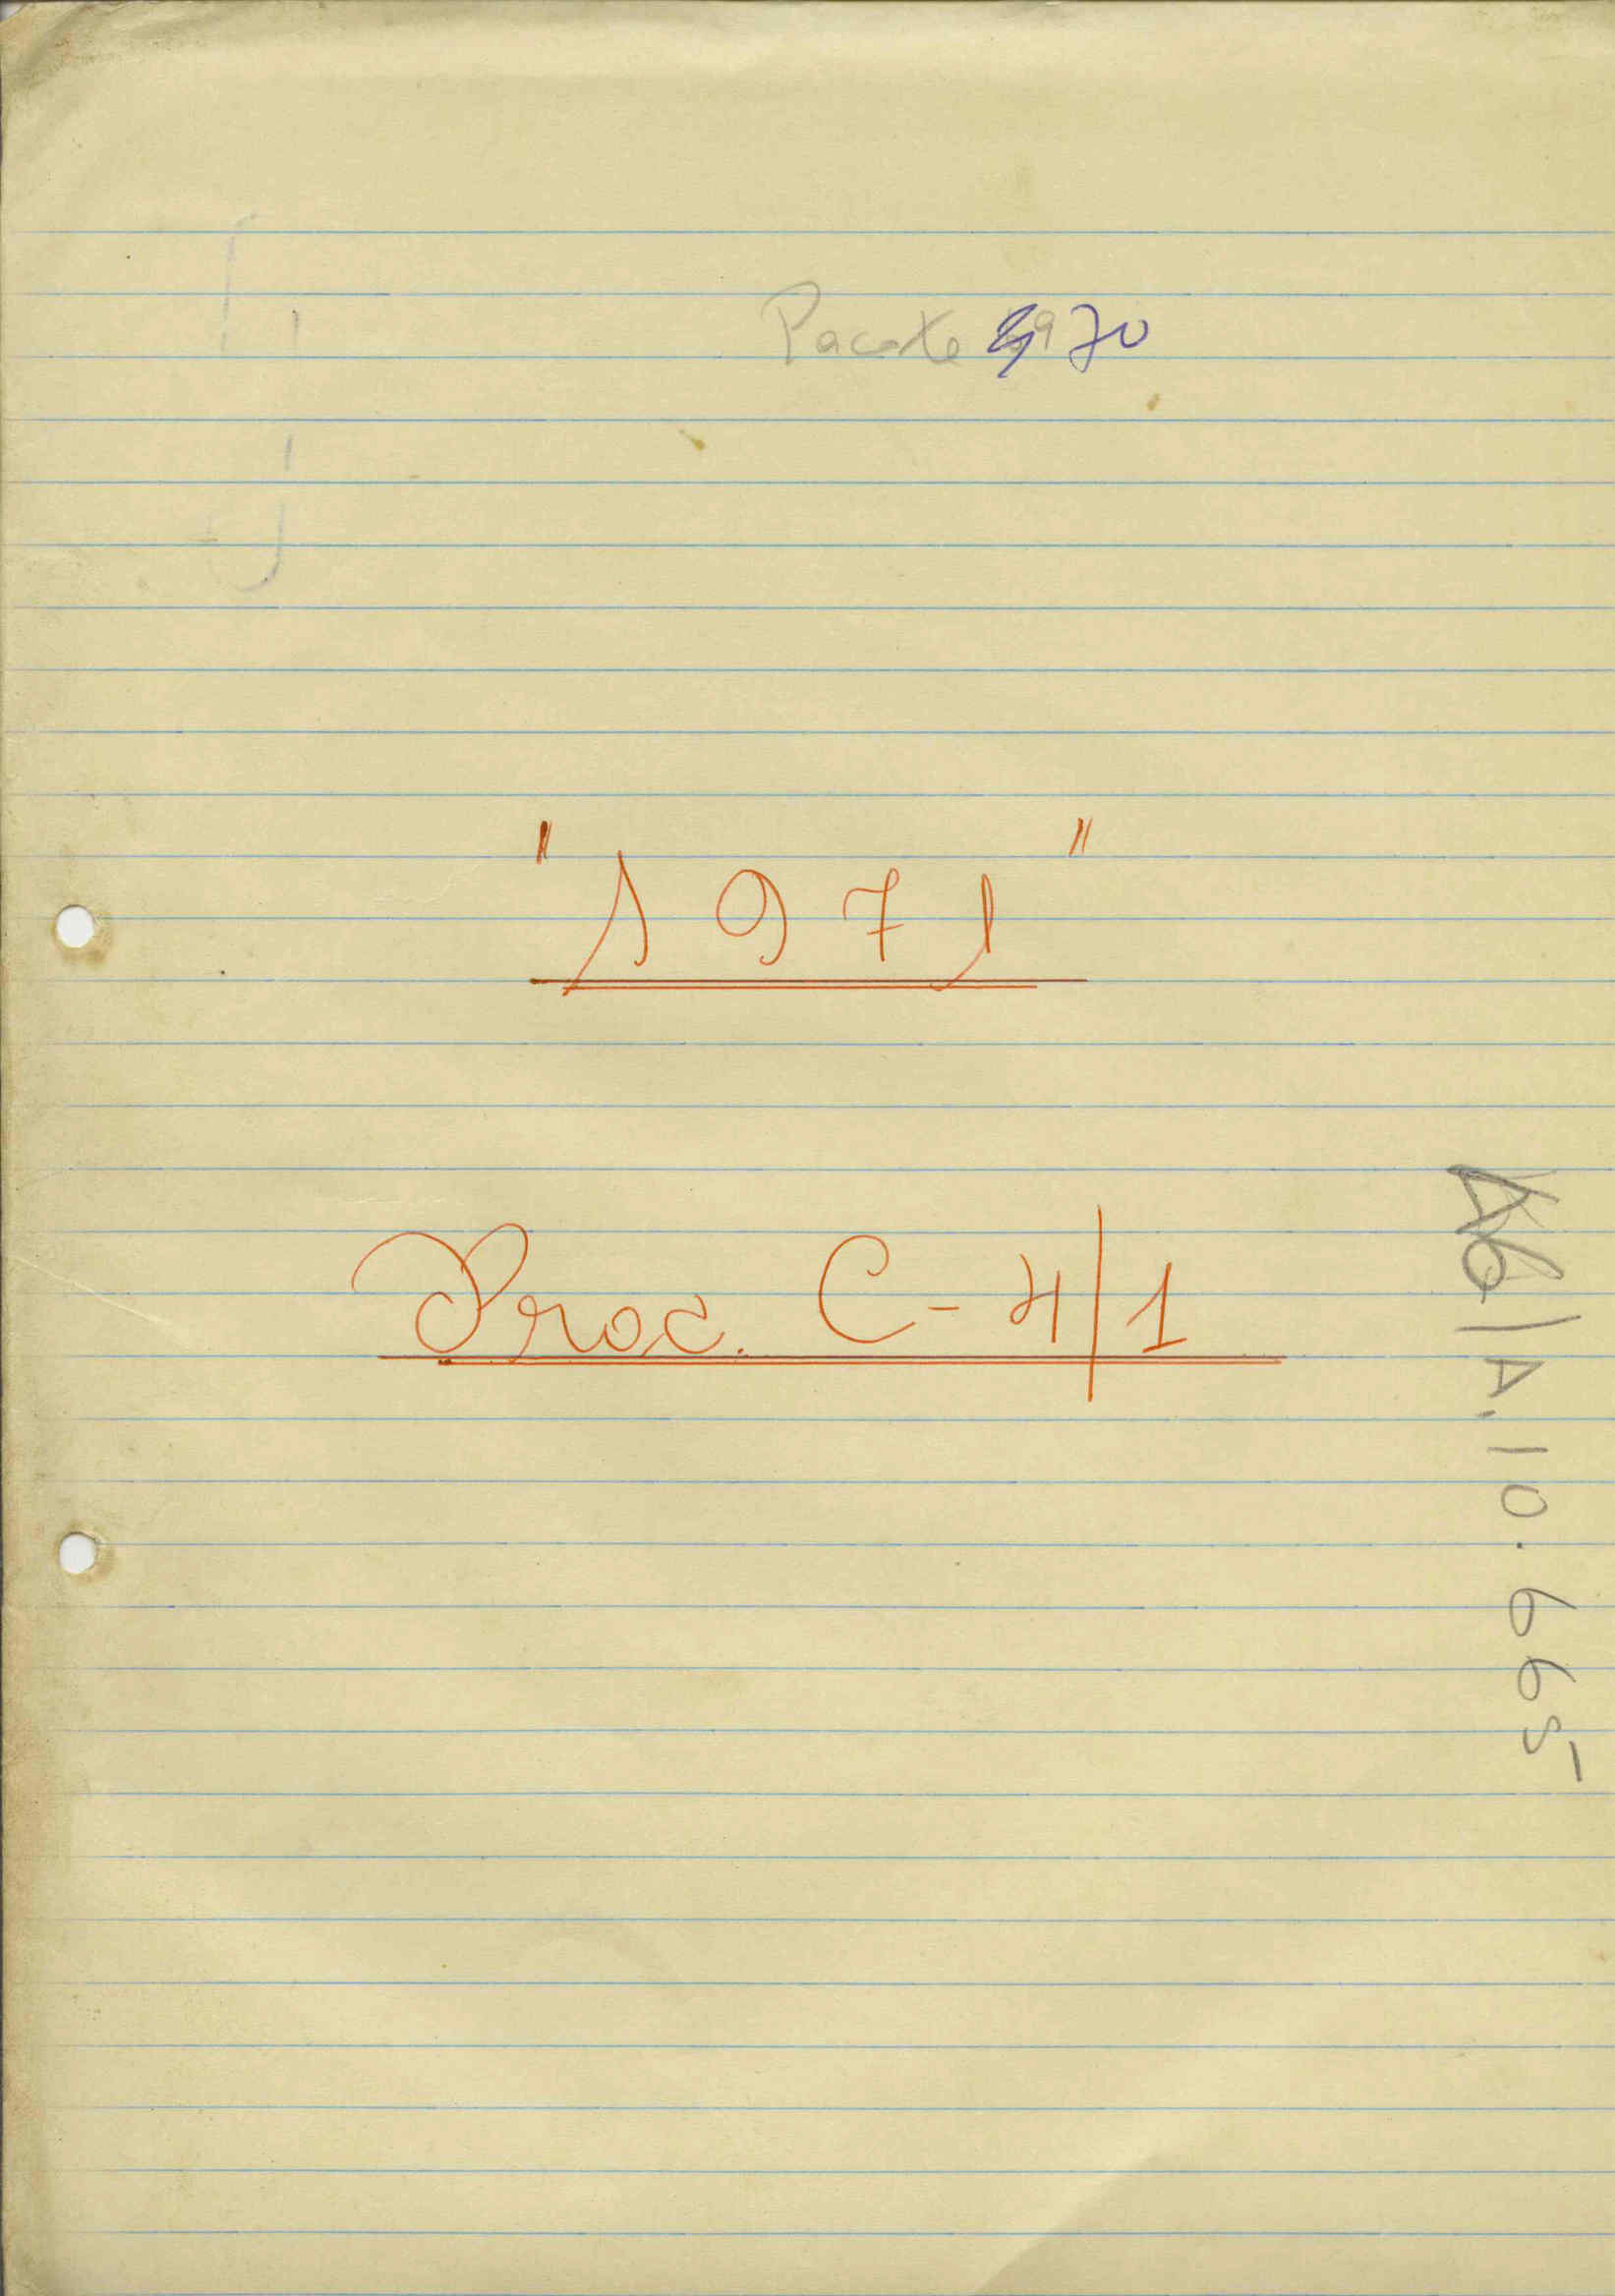 Pacote 70
"1971"
Proc. C-4/1
A6/A.10.665